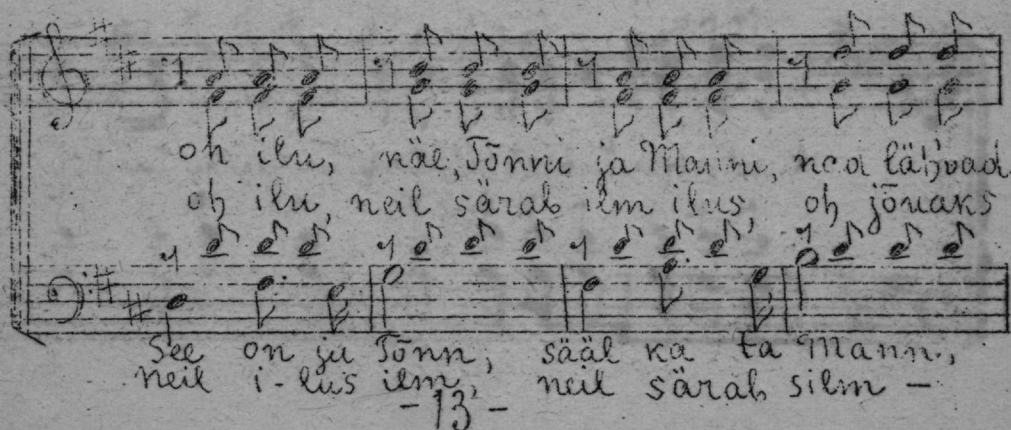 oh ilu, näe, Tõnni ja Manni, nea lähvad
oh ilu, neil särab ilm ilus, oh jõuaks
See on ju Tõnn, sääl ka ta Mann,
neil i-lus ilm, neil särab silm –
-13-